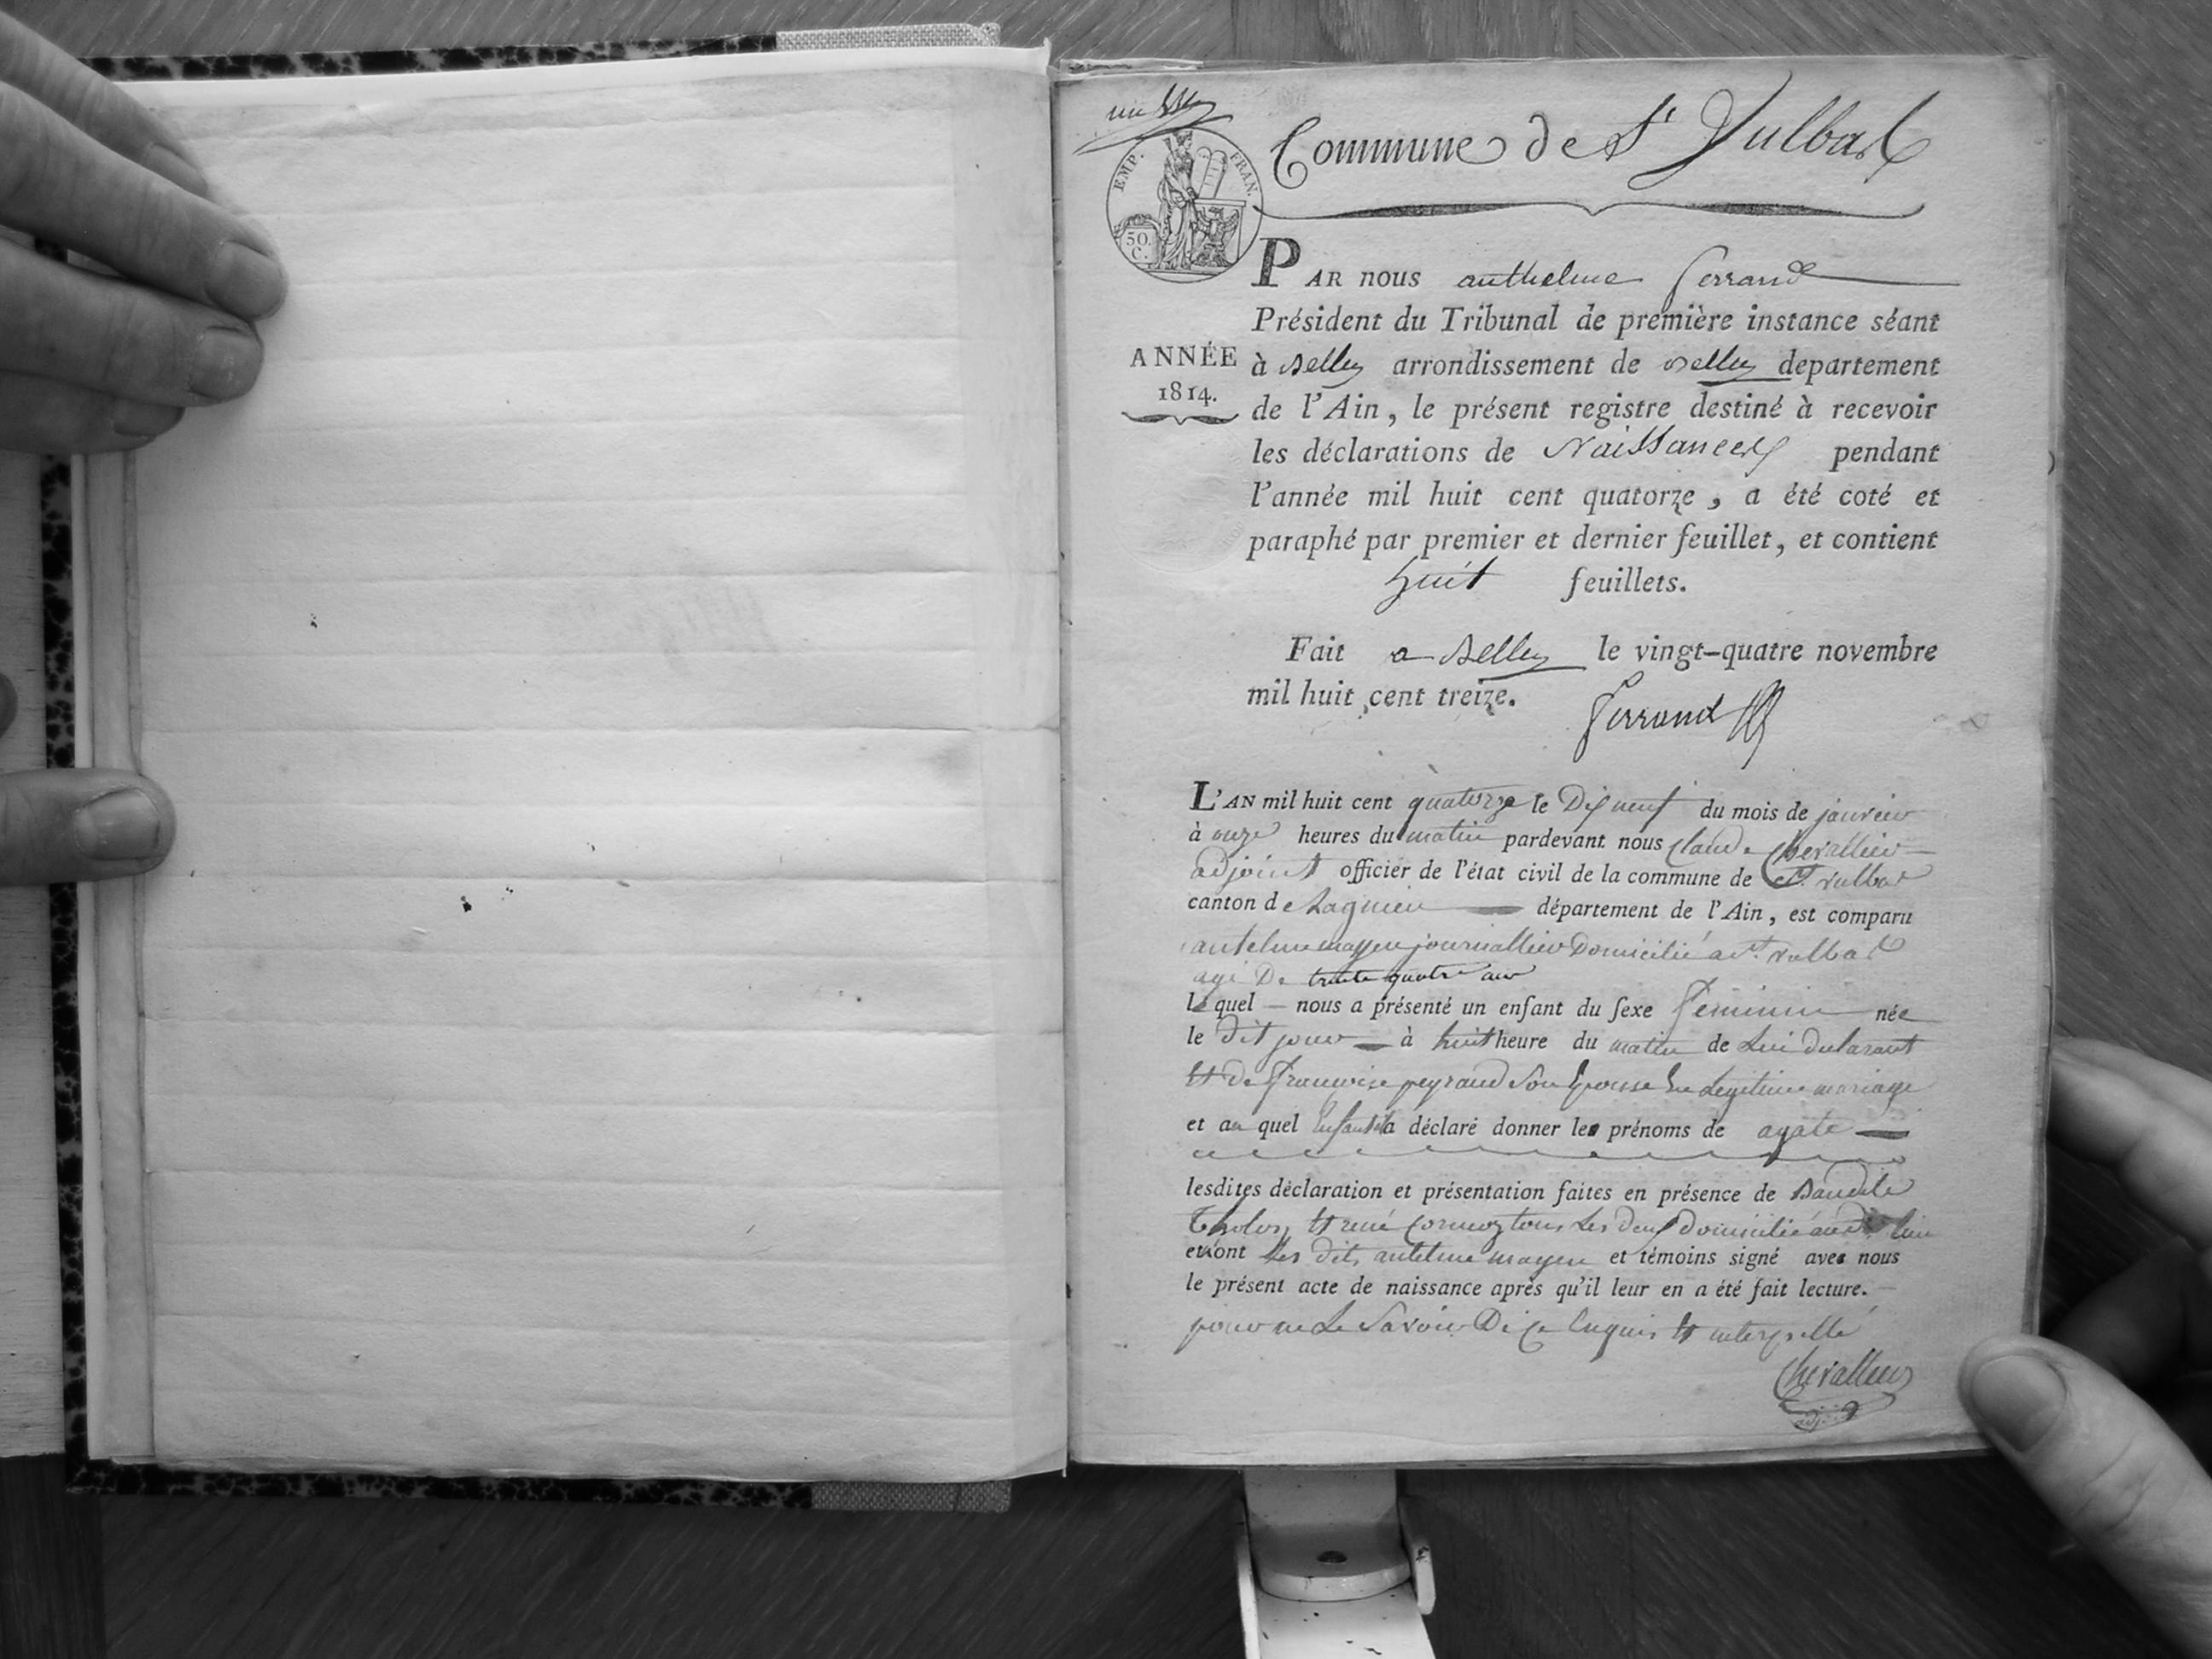 Commune de St Vulbas
EMP. FRAN.
50.
C.
PAR nous anthelme ferrand
Président du Tribunal de première instance séant
ANNÉE
1814.
à Belley arrondissement de Belley departement
de l'Ain, le présent registre destiné à recevoir
les déclarations de Naissances pendant
l'année mil huit cent quatorze, a été coté et
paraphé par premier et dernier feuillet, et contient
huit feuillets.
Fait a Belley le vingt-quatre novembre
mil huit cent treize.
ferrand
L'AN mil huit cent quatorze le Dix neuf du mois de janvier
à onze heures du matin pardevant nous Claude Chevallier
adjoint officier de l'état civil de la commune de St. vulbas
canton de Lagnieu département de l'Ain, est comparu
antelme mayen journallier Domicilié a St. vulbas
agé De trente quatre ans
le quel nous a présenté un enfant du sexe féminin née
le dit jour à huit heure du matin de Lui declarant
Et de françoise peyraud Son Epouse En Legitime mariage
et au quel Enfant il a déclaré donner le prénoms de agate
lesdites déclaration et présentation faites en présence de Baudile
et rené Cormoz tous Les deux domicilié audit lieu
et n'ont Les dits antelme mayen et témoins signé avec nous
le présent acte de naissance après qu'il leur en a été fait lecture.
pour ne Le Savoir De ce Enquis Et interpellé
Chevallier
adjoint